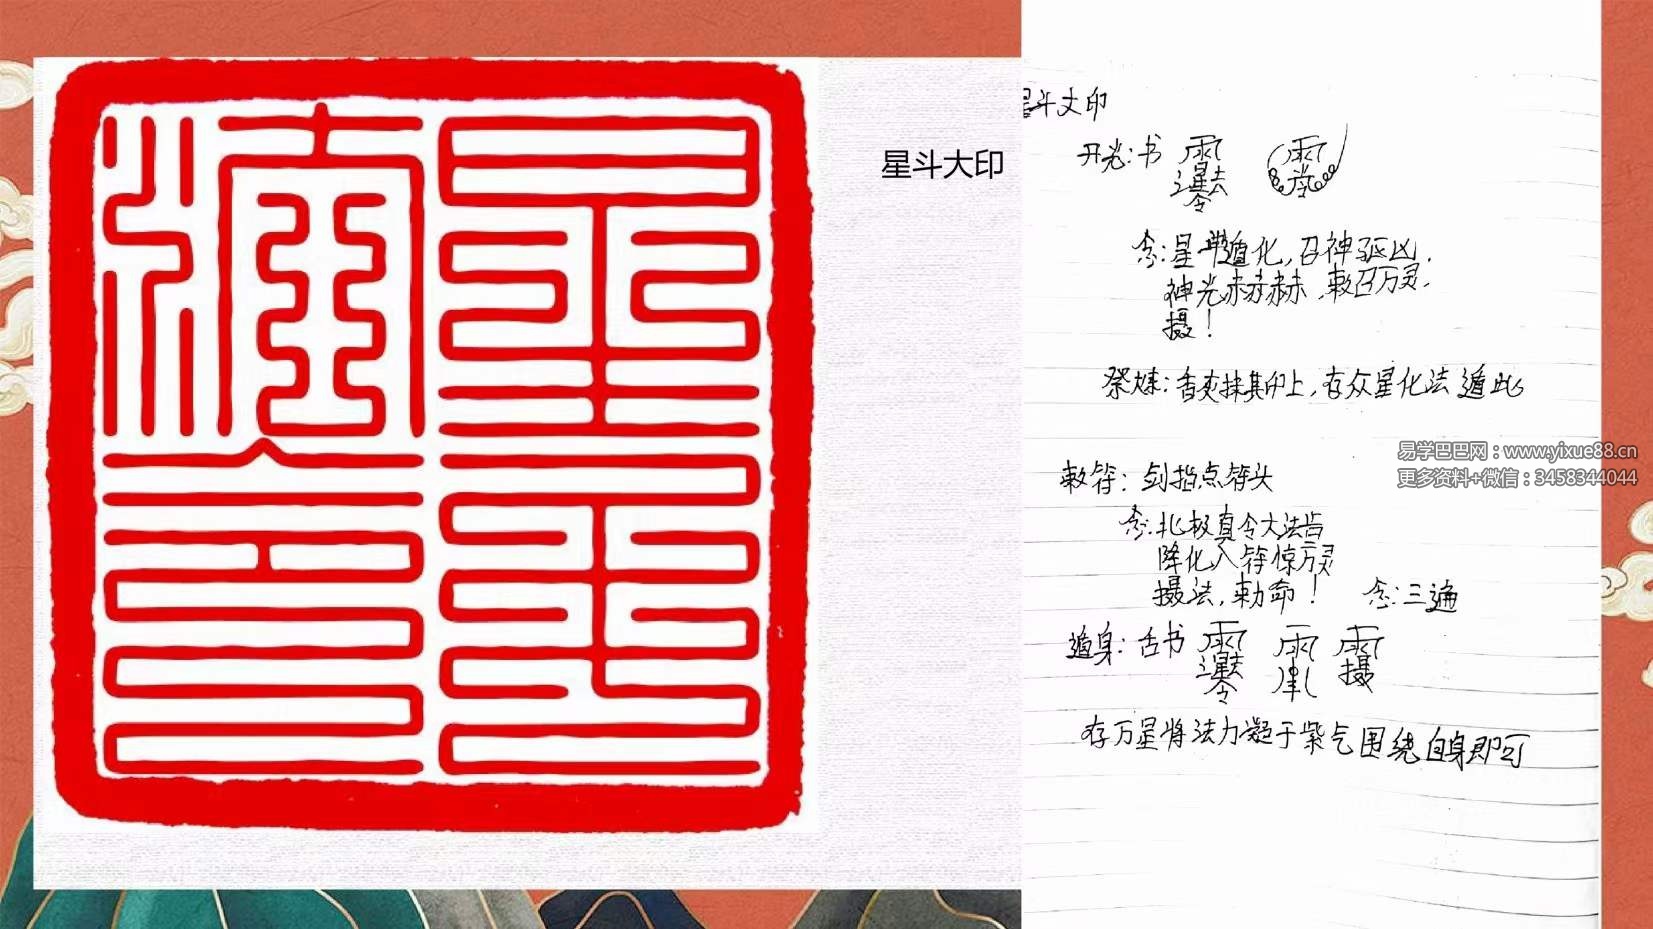 星斗大印
星斗大印
开光：书
念：星斗遁化，召神驱凶，
神光赫赫，敕召万灵，
摄！
祭炼：香灰抹其印上，存众星化法遁此
敕符：剑指点符头
念：北极真令大法旨
降化入符惊万灵
摄法，敕命！ 念：三遍
遁身：舌书
存万星将法力凝于紫气围绕自身即可
易学巴巴网：www.yixue88.cn
更多资料+微信：3458344044